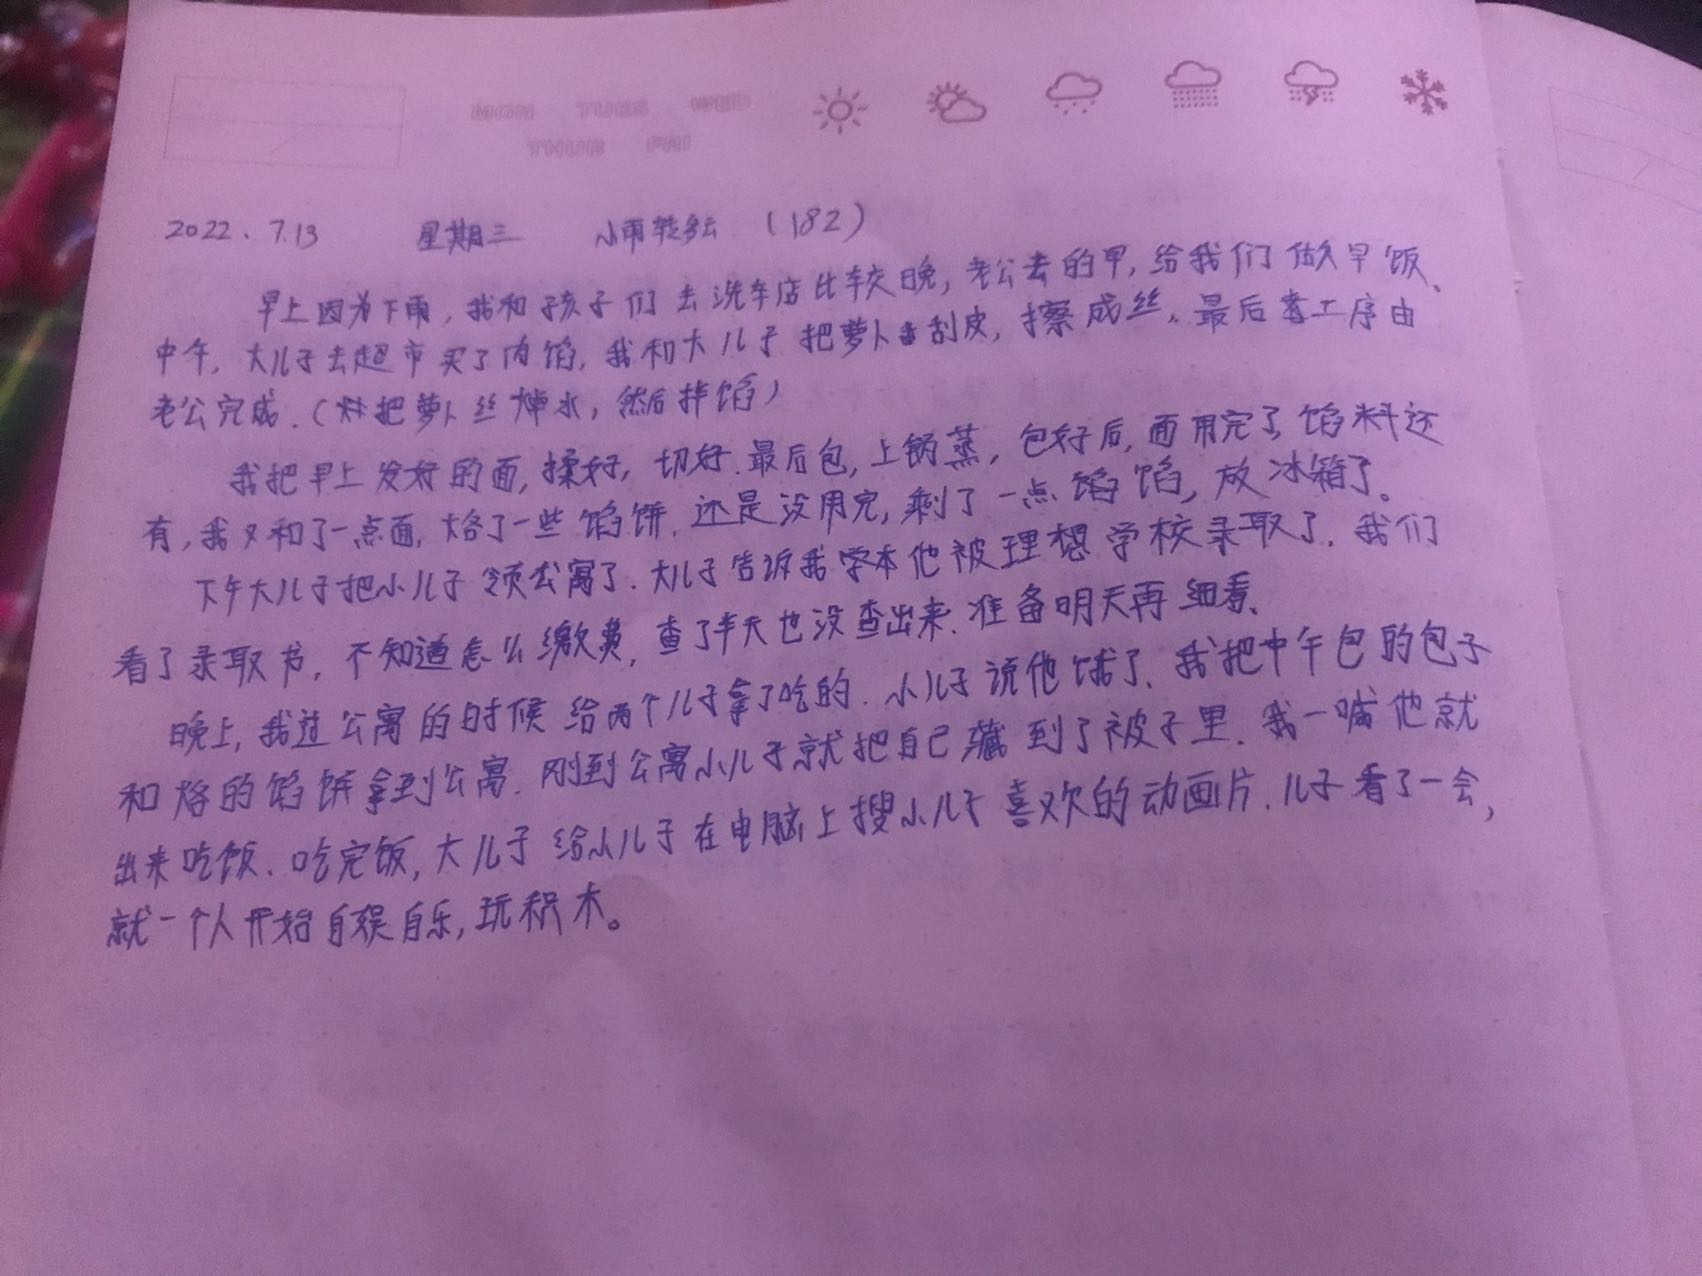 MON TUES WED
THUR FRI
2022、7.13 星期三 小雨转多云 (182)
早上因为下雨,我和孩子们去洗车店比较晚,老公去的早,给我们做早饭、
中午,大儿子去超市买了肉馅,我和大儿子把萝卜刮皮,擦成丝、最后工序由
老公完成.(把萝卜丝焯水,然后拌馅)
我把早上发好的面,揉好,切好.最后包,上锅蒸,包好后,面用完了,馅料还
有,我又和了一点面,烙了一些馅饼.还是没用完,剩了一点馅馅,放冰箱了。
下午大儿子把小儿子领公寓了.大儿子告诉我学本他被理想学校录取了.我们
看了录取书,不知道怎么缴费,查了半天也没查出来.准备明天再细看、
晚上,我进公寓的时候给两个儿子拿了吃的.小儿子说他饿了、我把中午包的包子
和烙的馅饼拿到公寓.刚到公寓小儿子就把自己藏到了被子里.我一喊他就
出来吃饭.吃完饭,大儿子给小儿子在电脑上搜小儿子喜欢的动画片.儿子看了一会,
就一个人开始自娱自乐,玩积木。